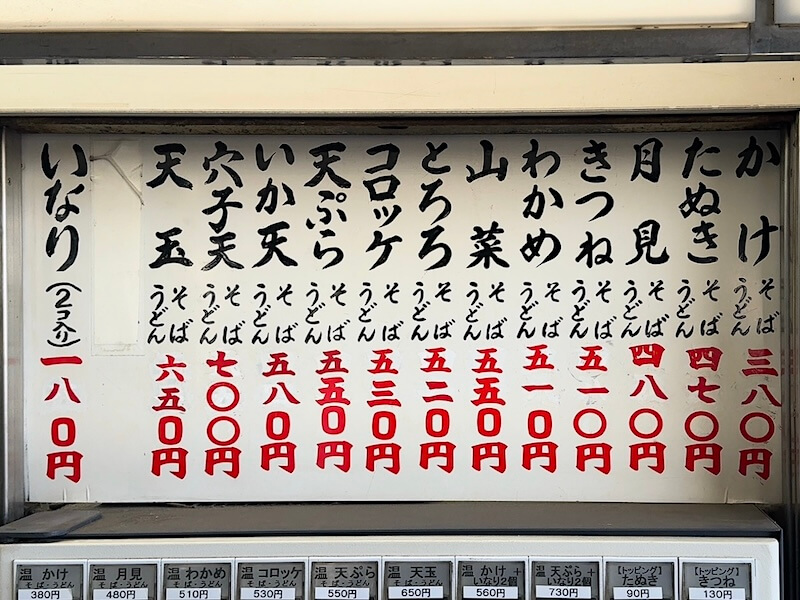 かけ そば うどん 三八〇円
たぬき そば うどん 四七〇円
月見 そば うどん 四八〇円
きつね そば うどん 五一〇円
わかめ そば うどん 五一〇円
山菜 そば うどん 五五〇円
とろろ そば うどん 五二〇円
コロッケ そば うどん 五三〇円
天ぷら そば うどん 五五〇円
いか天 そば うどん 五八〇円
穴子天 そば うどん 七〇〇円
天玉 そば うどん 六五〇円
いなり (2コ入り) 一八〇円
温 かけ そば・うどん 380円
温 月見 そば・うどん 480円
温 わかめ そば・うどん 510円
温 コロッケ そば・うどん 530円
温 天ぷら そば・うどん 550円
温 天玉 そば・うどん 650円
温 かけ+いなり2個 560円
温 天ぷら+いなり2個 730円
【トッピング】たぬき 90円
【トッピング】きつね 130円